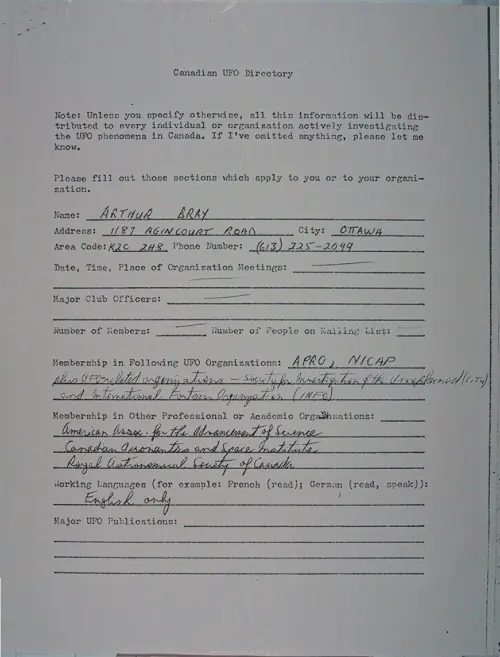 Canadian UFO Directory
Note: Unless you specify otherwise, all this information will be dis-
tributed to every individual or organization actively investigating
the UFO phenomena in Canada. If I've omitted anything, please let me
know.
Please fill out those sections which apply to you or to your organi-
zation.
Name: ARTHUR BRAY
Address: 1187 AGINCOURT ROAD City: OTTAWA
Area Code: K2C 2H8 Phone Number: (613) 225-2049
Date, Time, Place of Organization Meetings:
Major Club Officers:
Number of Members: Number of People on Mailing List:
Membership in Following UFO Organizations: APRO, NICAP
plus UFO related organizations - Society for Investigation of the Unexplained (SITU)
and International Fortean Organization (INFO)
Membership in Other Professional or Academic Organizations:
American Assoc. for the Advancement of Science
Canadian Aeronautics and Space Institute
Royal Astronomical Society of Canada
Working Languages (for example: French (read); German (read, speak)):
English only
Major UFO Publications: